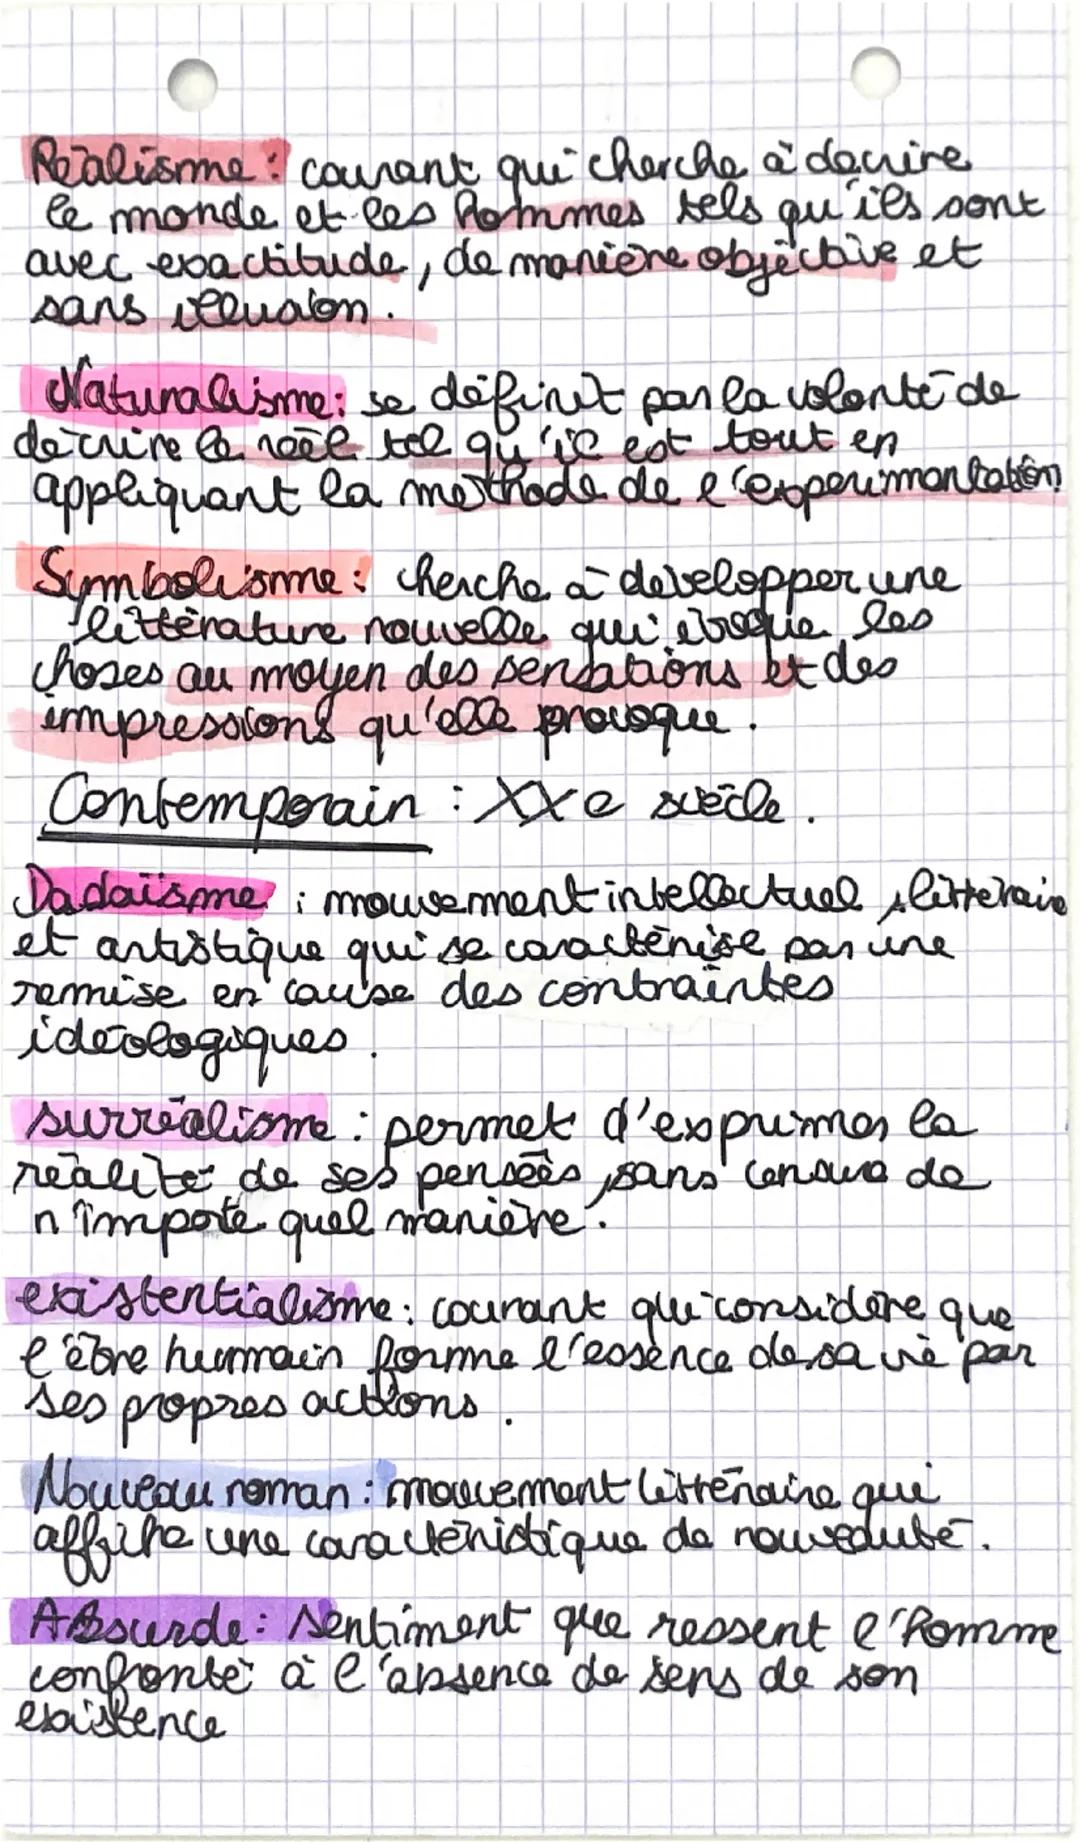 Réalisme : courant qui cherche à décrire
le monde et les hommes tels qu'ils sont
avec exactitude, de manière objective et
sans illusion.
Naturalisme : se définit par la volonté de
décrire le réel tel qu'il est tout en
appliquant la méthode de l'expérimentation
Symbolisme : cherche à développer une
littérature nouvelle qui évoque les
choses au moyen des sensations et des
impressions qu'elle provoque.
Contemporain : XXe siècle.
Dadaïsme : mouvement intellectuel, littéraire
et artistique qui se caractérise par une
remise en cause des contraintes
idéologiques.
surréalisme : permet d'exprimer la
réalité de ses pensées, sans censure de
n'importe quel manière.
existentialisme : courant qui considère que
l'être humain forme l'essence de sa vie par
ses propres actions.
Nouveau roman : mouvement littéraire qui
affiche une caractéristique de nouveauté.
Absurde : sentiment que ressent l'homme
confronté à l'absence de sens de son
existence